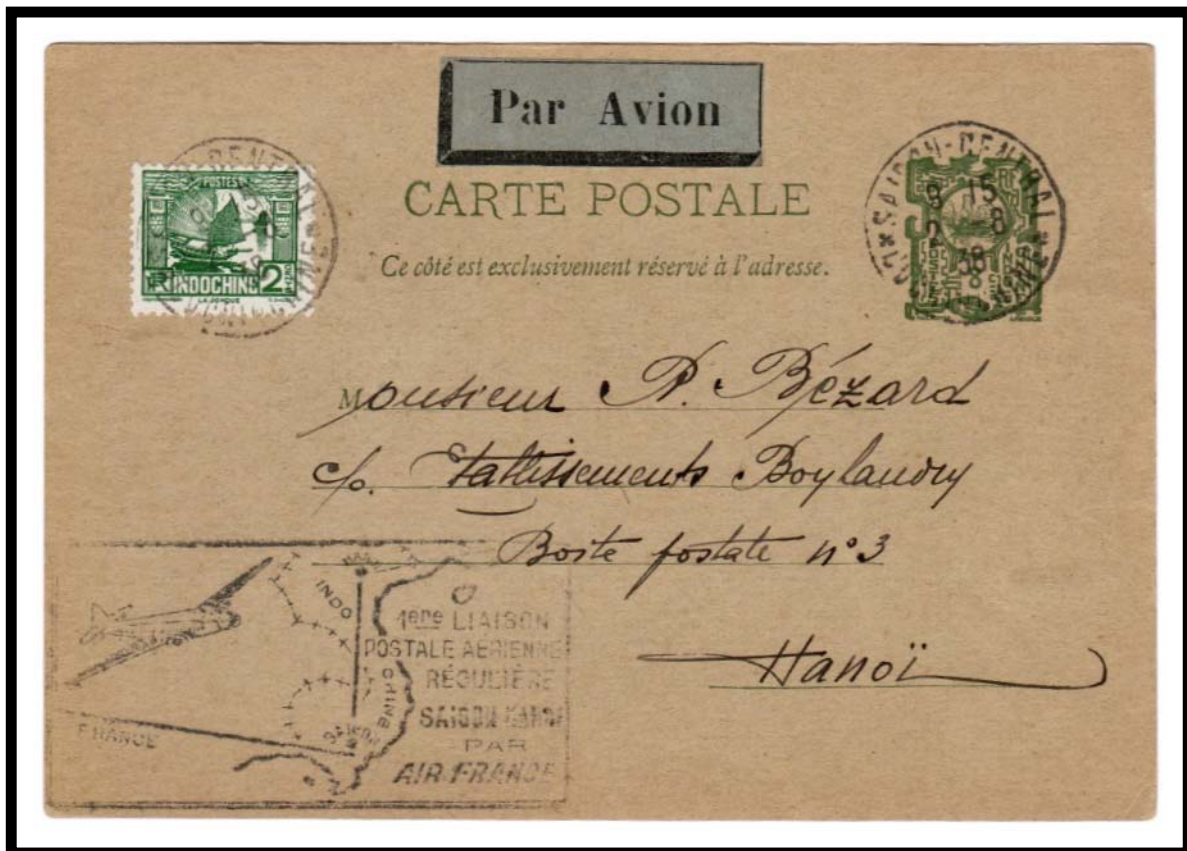 Par Avion
CARTE POSTALE
Ce côté est exclusivement réservé à l'adresse.
POSTES
INDOCHINE
2
LA JONQUE
SAIGON-CENTRAL
9 15
2 -8
38
Monsieur P. Bézard
c/o. Etablissements Boylandry
Boite postale n° 3
Hanoï
INDO
CHINE
SAIGON
FRANCE
1ere LIAISON
POSTALE AÉRIENNE
RÉGULIÈRE
SAIGON-HANOI
PAR
AIR FRANCE